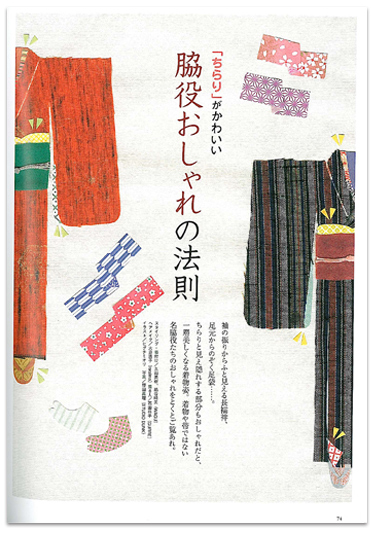 「ちらり」がかわいい
脇役おしゃれの法則
袖の振りからふと見える長襦袢、
足元からのぞく足袋……。
ちらりと見え隠れする部分もおしゃれだと、
一層美しくなる着物姿。着物や帯ではない
名脇役たちのおしゃれをとくとご覧あれ。